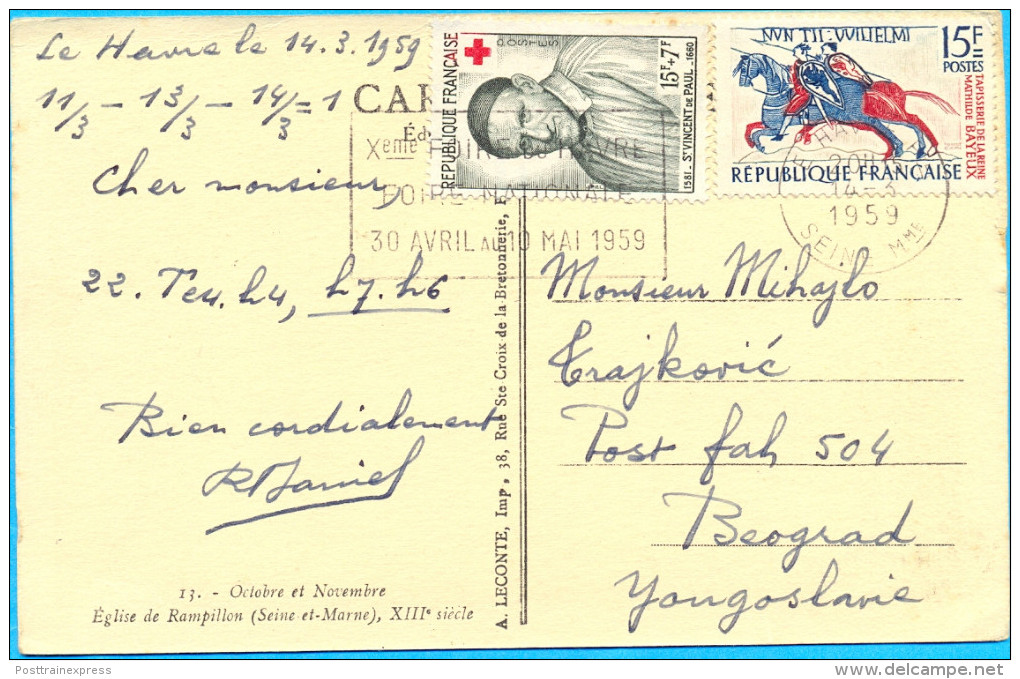 Le Havre le 14.3.1959
11/3 - 13/3 - 14/3 = 1
Cher monsieur,
22. Te4.h4, h7.h6
Bien cordialement
13. - Octobre et Novembre
Église de Rampillon (Seine-et-Marne), XIIIe siècle
A. LECONTE, Imp, 38, Rue Ste Croix de la Bretonnerie,
CAR
Xeme FOIRE DU HAVRE
FOIRE NATIONALE
30 AVRIL AU 10 MAI 1959
RÉPUBLIQUE FRANÇAISE
POSTES
15F+7F
1581 - St VINCENT DE PAUL - 1660
NVNTII : VVILIELMI
15F
POSTES
TAPISSERIE DE LA REINE
MATHILDE BAYEUX
RÉPUBLIQUE FRANÇAISE
14-3
1959
SEINE MME
Monsieur Mihajlo
Trajković
Post fah 504
Beograd
Yougoslavie
Posttrainexpress
delcampe.net